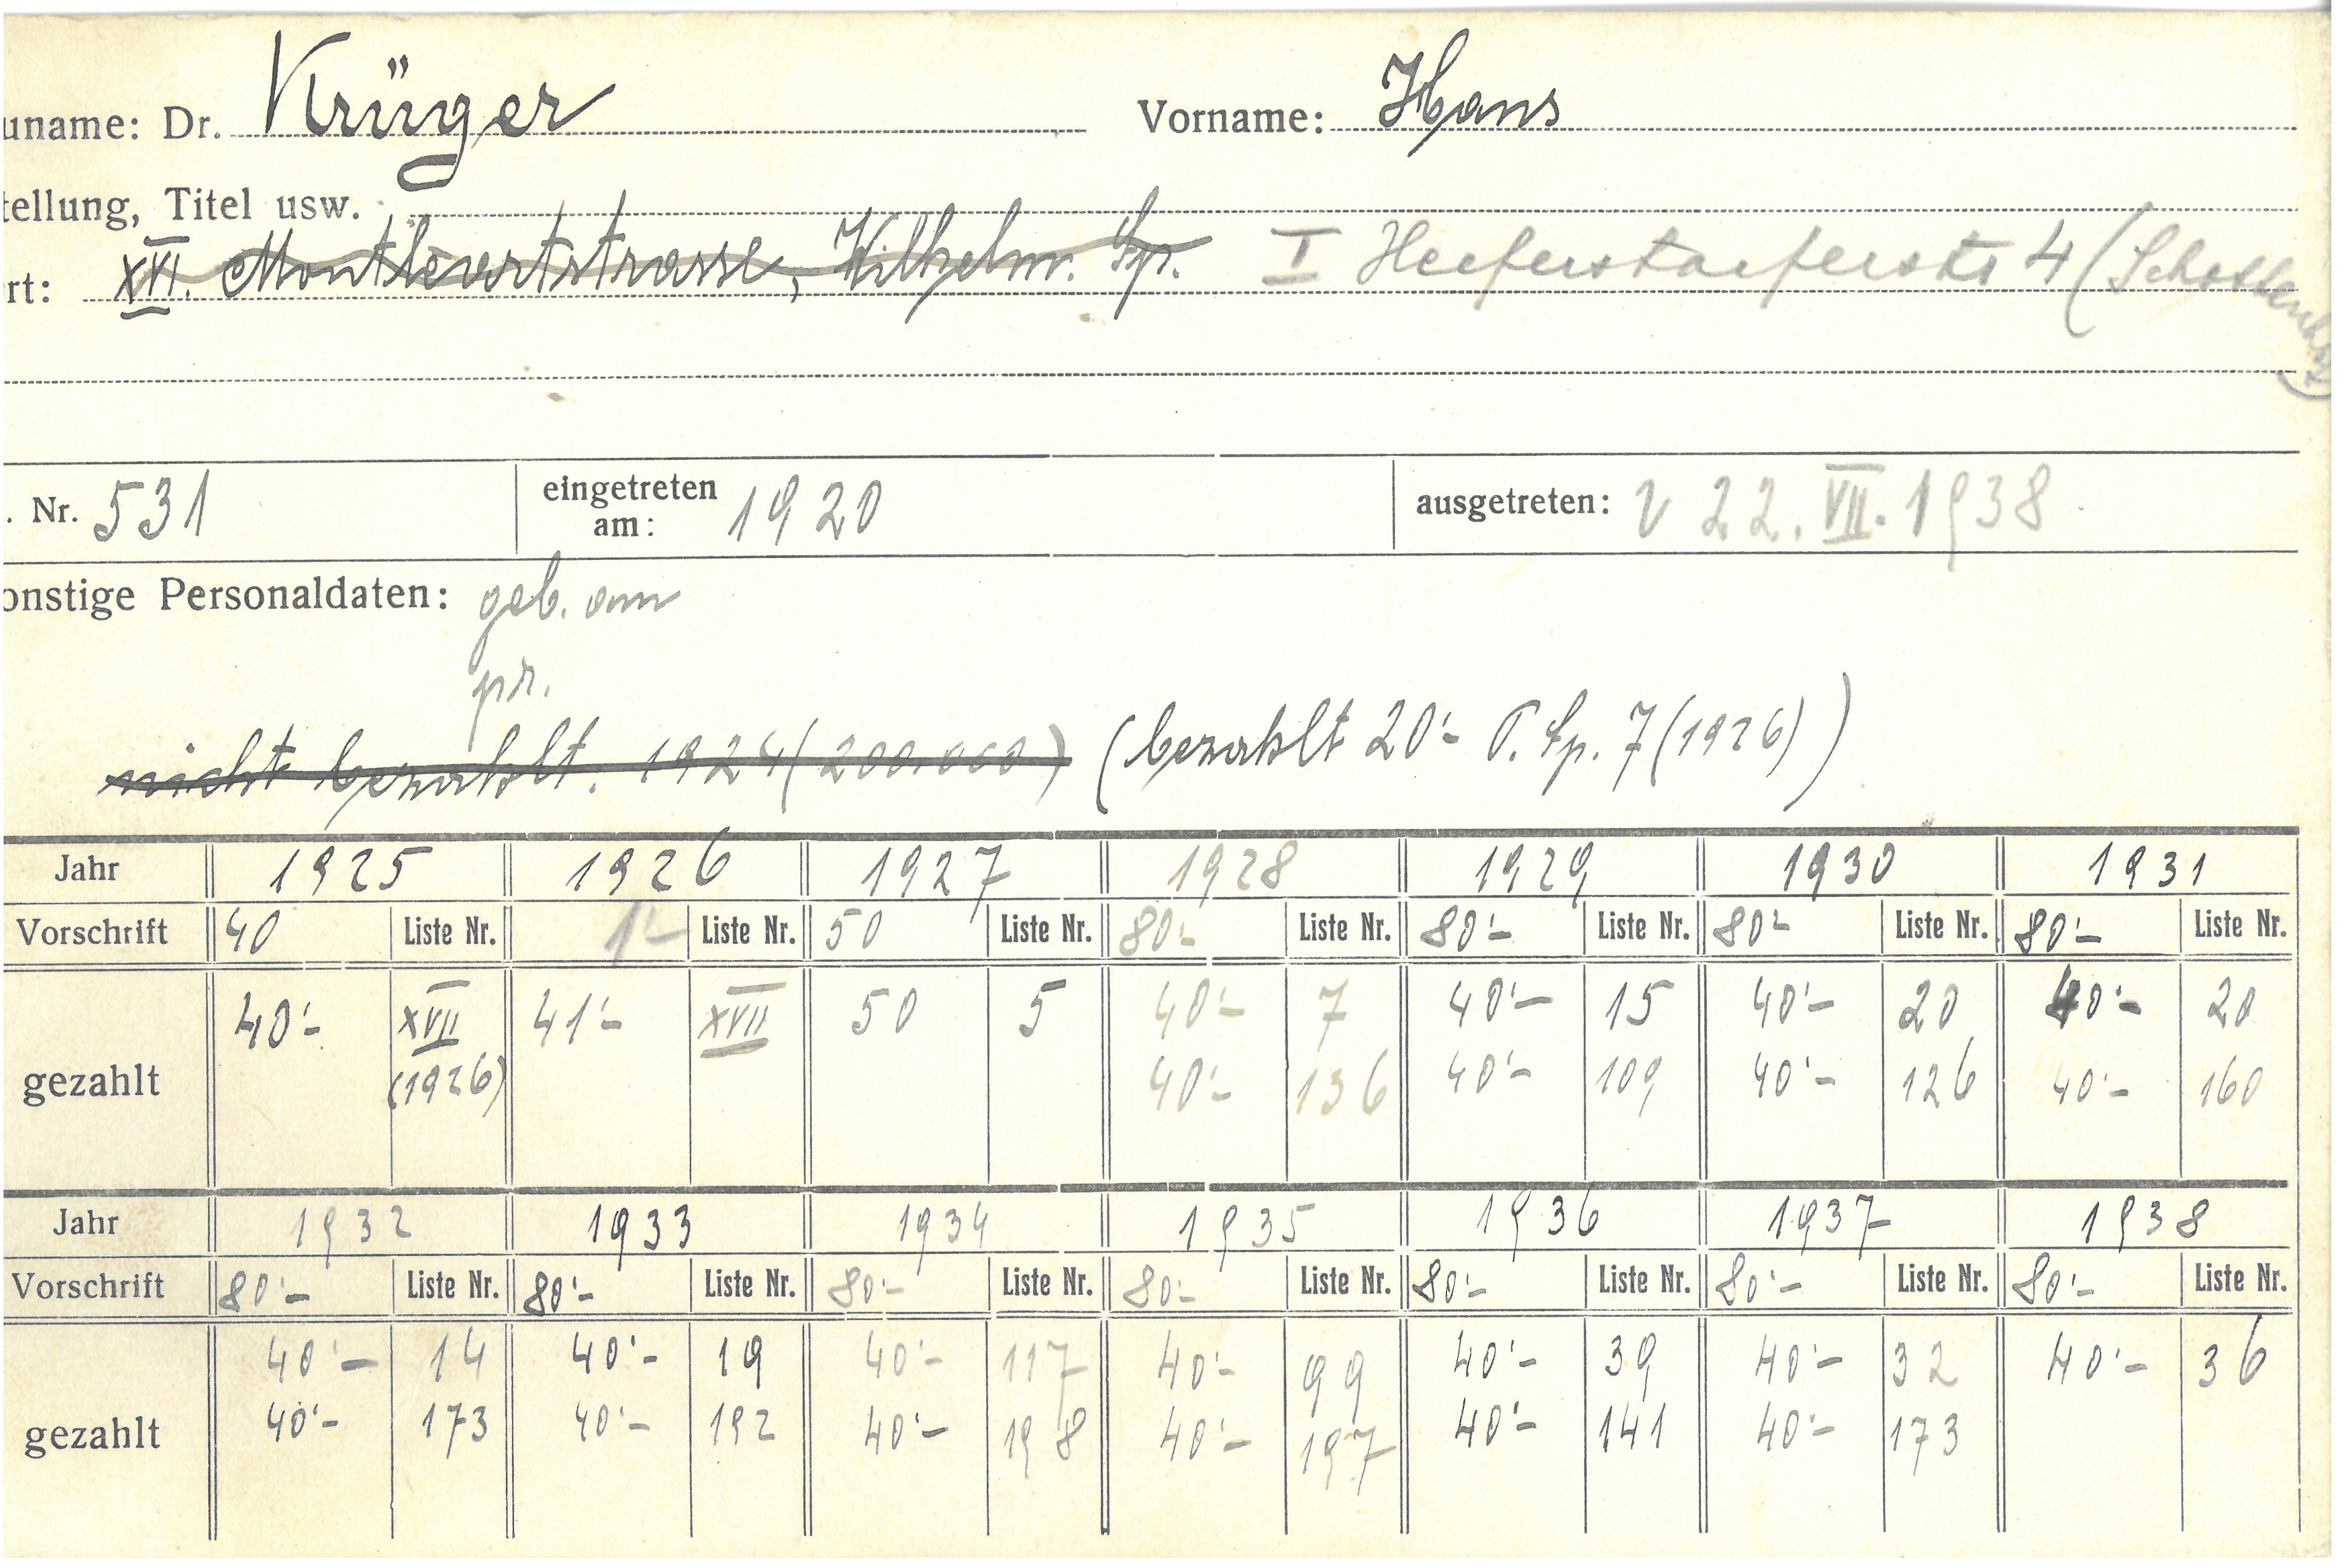 uname: Dr. Krüger Vorname: Hans
tellung, Titel usw.
rt: XVI. Montlevertstrasse, Wilhelm. Sp. I Heeferstorferstr 4 (Schottenhof)
. Nr. 531 eingetreten am: 1920 ausgetreten: 22. VII. 1938
onstige Personaldaten: geb. am
pr.
nicht bezahlt. 1924 (200.000) (bezahlt 20'- P. Sp. 7 (1926))
Jahr 1925 1926 1927 1928 1929 1930 1931
Vorschrift 40 Liste Nr. 1'- Liste Nr. 50 Liste Nr. 80'- Liste Nr. 80'- Liste Nr. 80'- Liste Nr. 80'- Liste Nr.
40'- XVII 41'- XVII 50 5 40'- 7 40'- 15 40'- 20 40'- 20
gezahlt (1926) 40'- 136 40'- 109 40'- 126 40'- 160
Jahr 1932 1933 1934 1935 1936 1937 1938
Vorschrift 80'- Liste Nr. 80'- Liste Nr. 80'- Liste Nr. 80'- Liste Nr. 80'- Liste Nr. 80'- Liste Nr. 80'- Liste Nr.
40'- 14 40'- 19 40'- 117 40'- 99 40'- 39 40'- 32 40'- 36
gezahlt 40'- 173 40'- 192 40'- 198 40'- 197 40'- 141 40'- 173